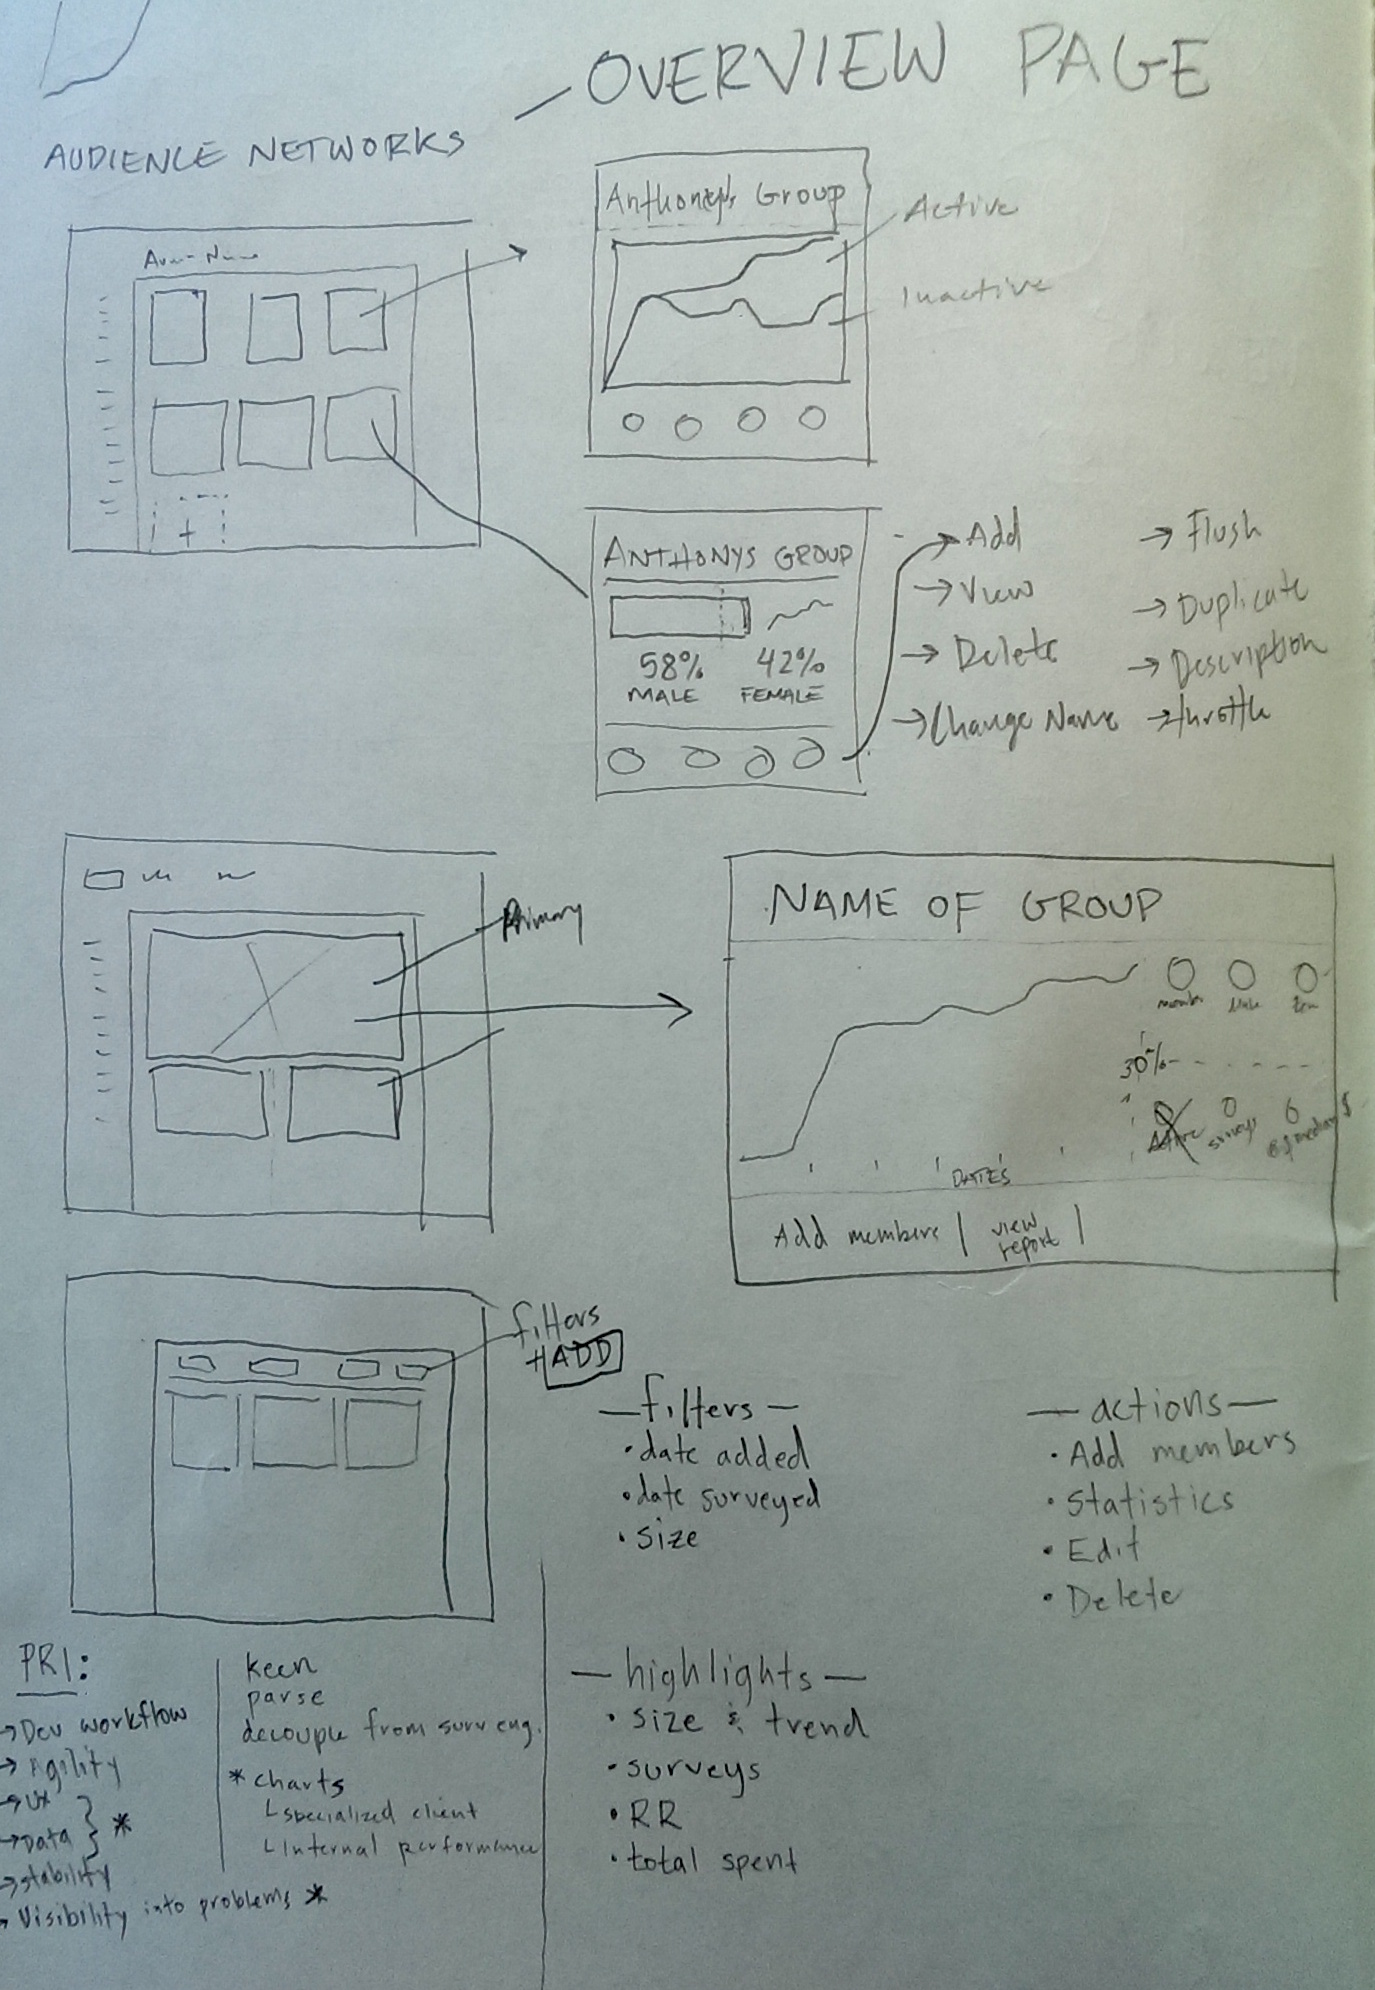 — OVERVIEW PAGE
AUDIENCE NETWORKS
Anthony's Group
Active
Inactive
ANTHONYS GROUP
58% 42%
MALE FEMALE
→ Add → Flush
→ View → Duplicate
→ Delete → Description
→ Change Name → throttle
Primary
NAME OF GROUP
member Male Fem
30%
Active surveys median $
DATES
Add members | view report |
filters
+ADD
— filters —
• date added
• date surveyed
• size
— actions —
• Add members
• Statistics
• Edit
• Delete
PRI:
→ Dev workflow
→ Agility
→ UX
→ Data } *
→ stability
→ Visibility into problems *
keen
parse
decouple from surv eng.
* charts
└ specialized client
└ Internal performance
— highlights —
• size & trend
• surveys
• RR
• total spent